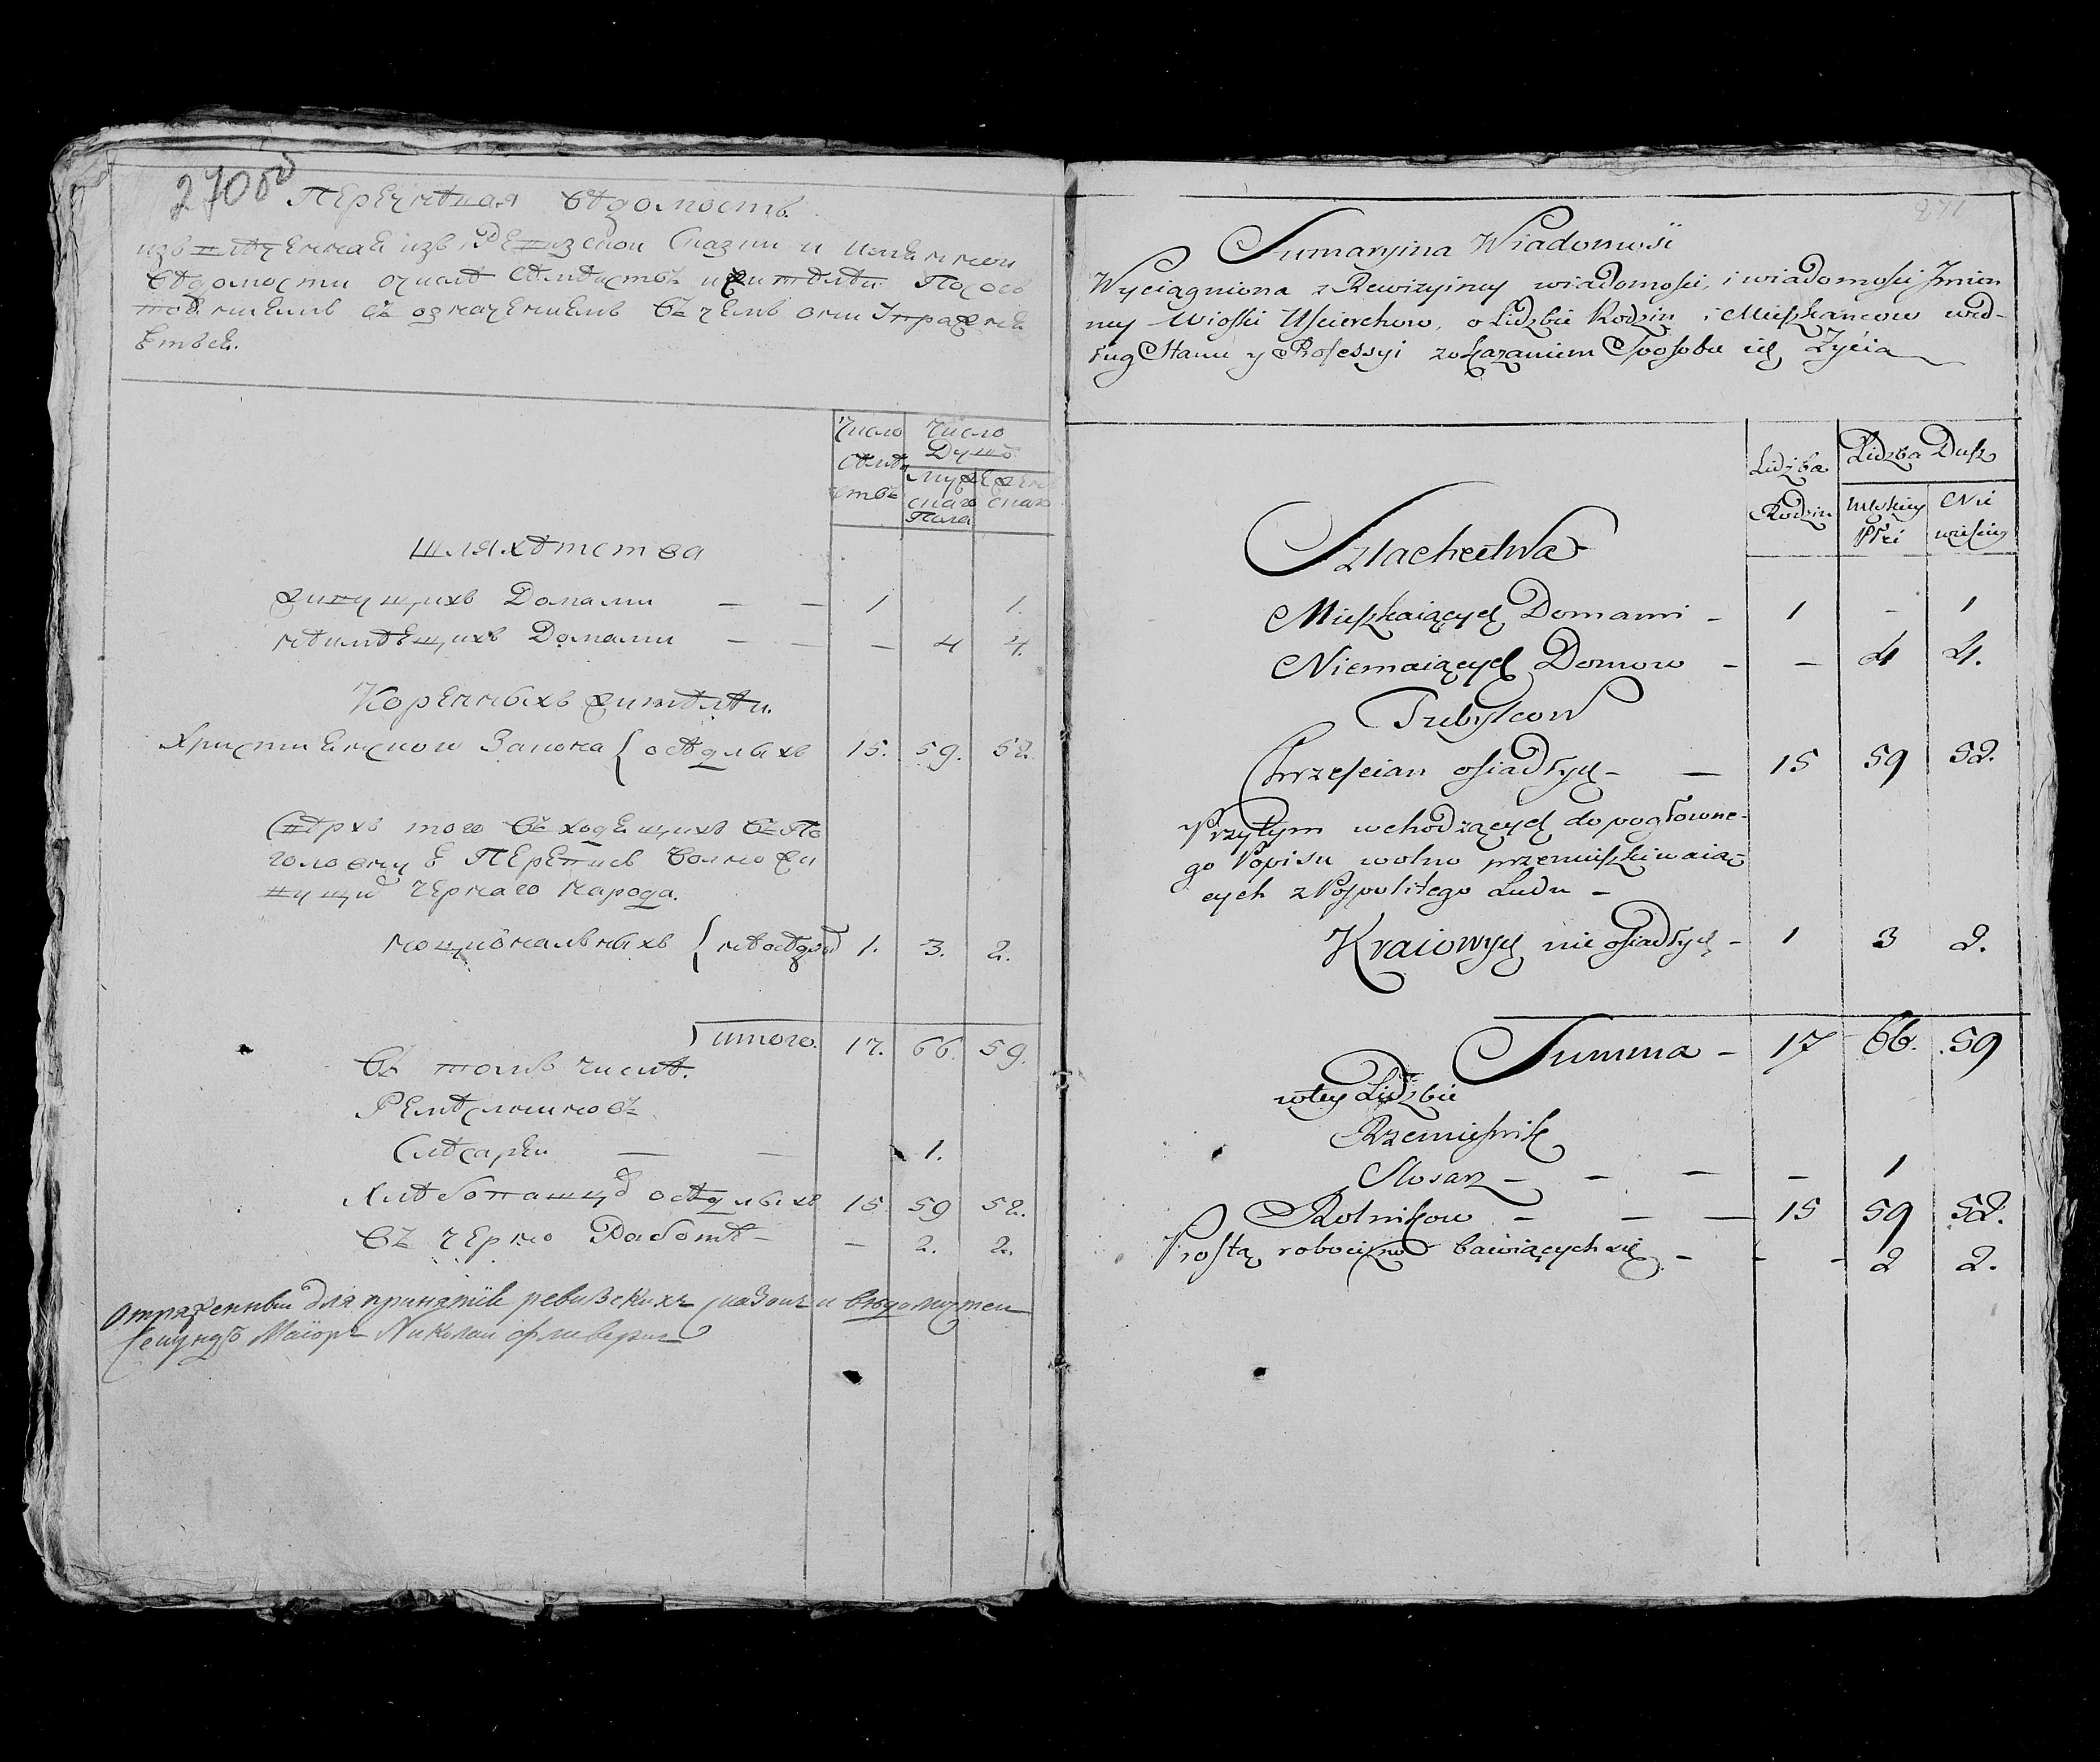 270 об
Перечневая ведомость
извлеченная изъ Ревизской Сказки и именной
ведомости о числе семействъ и жителей По сос
тоянiемъ съ означенiемъ въ чемъ они Упражне
Число Число
Душъ
Мужескаго Женскаго
Пола
Шляхетства
живущихъ Домами — — 1 1.
неимеющихъ Домами — — — 4 4.
Коренныхъ жителей.
Християнского Закона { оседлыхъ 15. 59. 52.
Сверхъ того въ ходящихъ въ По
головную Перепись вольно жи
вущихъ чернаго народа.
нацiональныхъ { неоседлыхъ 1. 3. 2.
итого. 17. 66. 59.
Въ томъ числе.
Ремесленниковъ
Слесарей — — 1.
Хлебопашцовъ оседлыхъ 15 59 52.
Въ черно Работе — — 2. 2.
Отряженный для принятiя ревизскихъ сказокъ и ведомостей
Секундъ Маiоръ Николай
271
Sumaryina Wiadomość
Wyciągniona z Rewizyiney wiadomości, i wiadomości Imien
ney Wioski Uscierchow, o Lidzbie Rodzin i Mieszkancow wed-
ług Stanu y Professyi z okazaniem Sposobu ich Życia
Lidzba Lidzba Dusz
Rodzin Męskiey Nie
Płci wieściey
Szlachectwa
Mieszkaiących Domami - 1 - 1
Niemaiących Domow - — 4 4.
Tubylcow
Chrzescian osiadłych - — 15 59 52.
Przytym wchodzących do pogłowne-
go Popisu wolno przemieszkiwaią-
cych z Pospolitego Ludu -
Kraiowych nie osiadłych - 1 3 2.
Summa - 17 66. 59
w tey Lidzbie
Rzemieśnik
Slosarz - - — - 1
Rolnikow - — — 15 59 52.
Prostą robocizną bawiących się - - - 2 2.